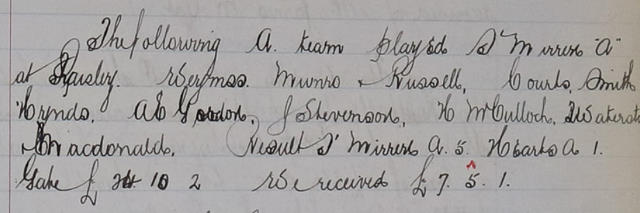 The following A. team played St Mirren "A"
at Paisley. Weymss. Munro & Russell, Courts, Smith
Hynds, A E Gordon, J Stevenson, H McCulloch,
Macdonald. Result St Mirren A. 5. Hearts A 1.
Gate £ 10 2 We received £ 7. 5. 1.